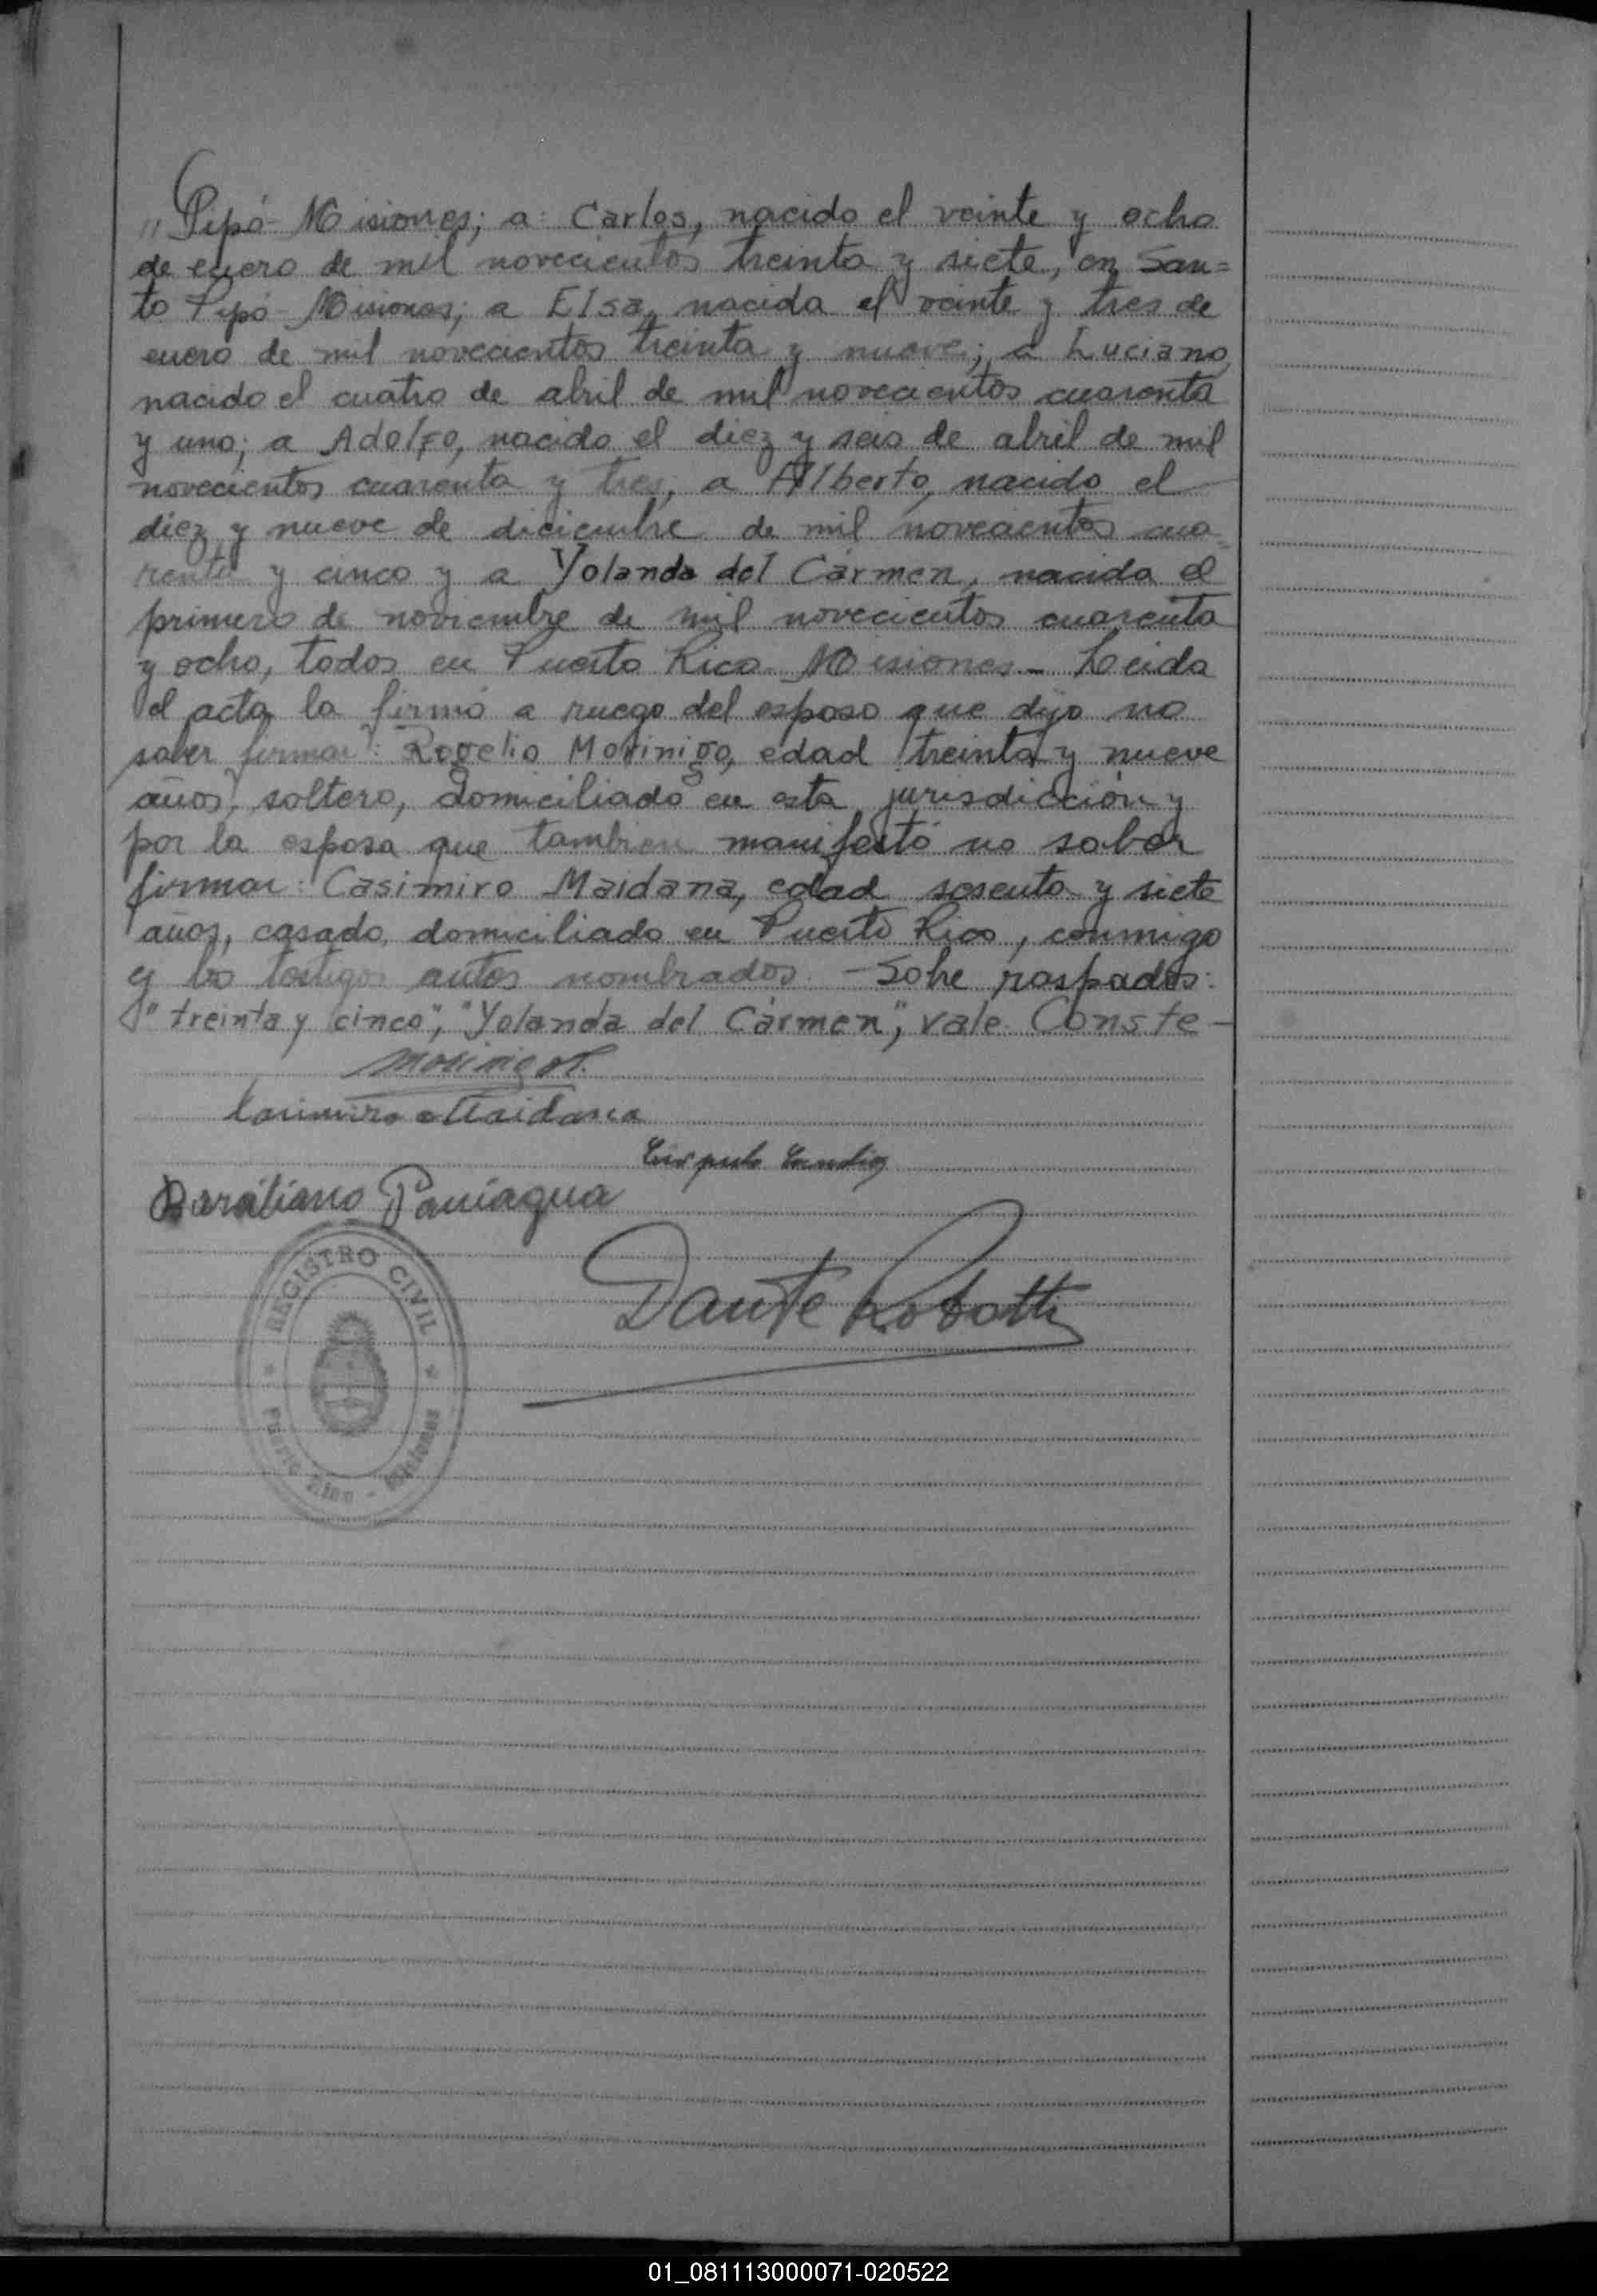 " Pipó - Misiones; a: Carlos, nacido el veinte y ocho
de enero de mil novecientos treinta y siete, en San=
to Pipó - Misiones; a Elsa, nacida el veinte y tres de
enero de mil novecientos treinta y nueve; a Luciano,
nacido el cuatro de abril de mil novecientos cuarenta
y uno; a Adolfo, nacido el diez y seis de abril de mil
novecientos cuarenta y tres, a Alberto, nacido el
diez y nueve de diciembre de mil novecientos cua=
renta y cinco y a Yolanda del Cármen, nacida el
primero de noviembre de mil novecientos cuarenta
y ocho, todos en Puerto Rico - Misiones. - Leida
el acta la firmó a ruego del esposo que dijo no
saber firmar: Rogelio Morinigo, edad treinta y nueve
años, soltero, domiciliado en esta jurisdicción y
por la esposa que tambien manifestó no saber
firmar: Casimiro Maidana, edad sesenta y siete
años, casado, domiciliado en Puerto Rico, conmigo
y los testigos antes nombrados. - Sobre raspados:
"treinta y cinco", "Yolanda del Cármen", vale. Conste -
Morinigo R.
Casimiro Maidana
Basiliano Paniagua
Dante
REGISTRO CIVIL
Puerto Rico - Misiones
01_081113000071-020522